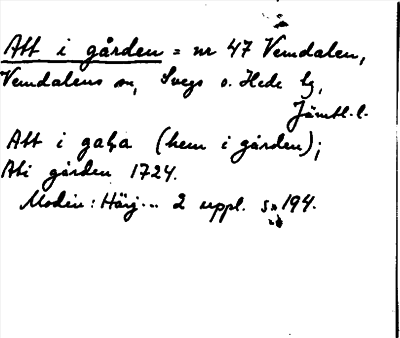 Att i gården = nr 47 Vemdalen,
Vemdalens sn, Svegs o. Hede tg,
Jämtl. l.
Att i gaḷa (hem i gården);
Ati gården 1724.
Modin: Härj... 2 uppl. s. 194.